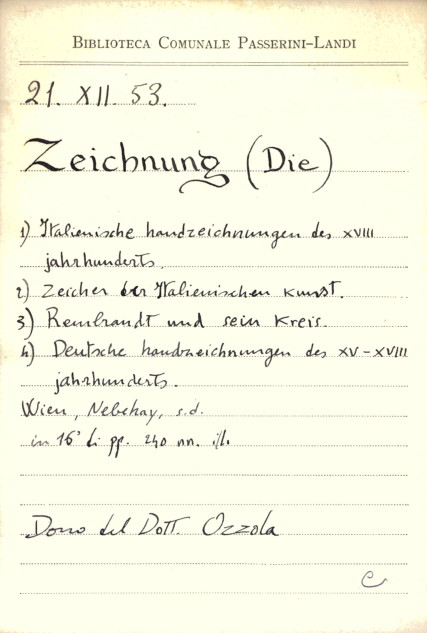 BIBLIOTECA COMUNALE PASSERINI-LANDI
21. XII. 53.
Zeichnung (Die)
1) Italienische handzeichnungen des XVIII
jahrhunderts.
2) Zeicher der Italienischen Kunst.
3) Rembrandt und sein Kreis.
4) Deutsche handzeichnungen des XV-XVIII
jahrhunderts.
Wien, Nebehay, s.d.
in 16° di pp. 240 nn. ill.
Dono del Dott. Ozzola
C